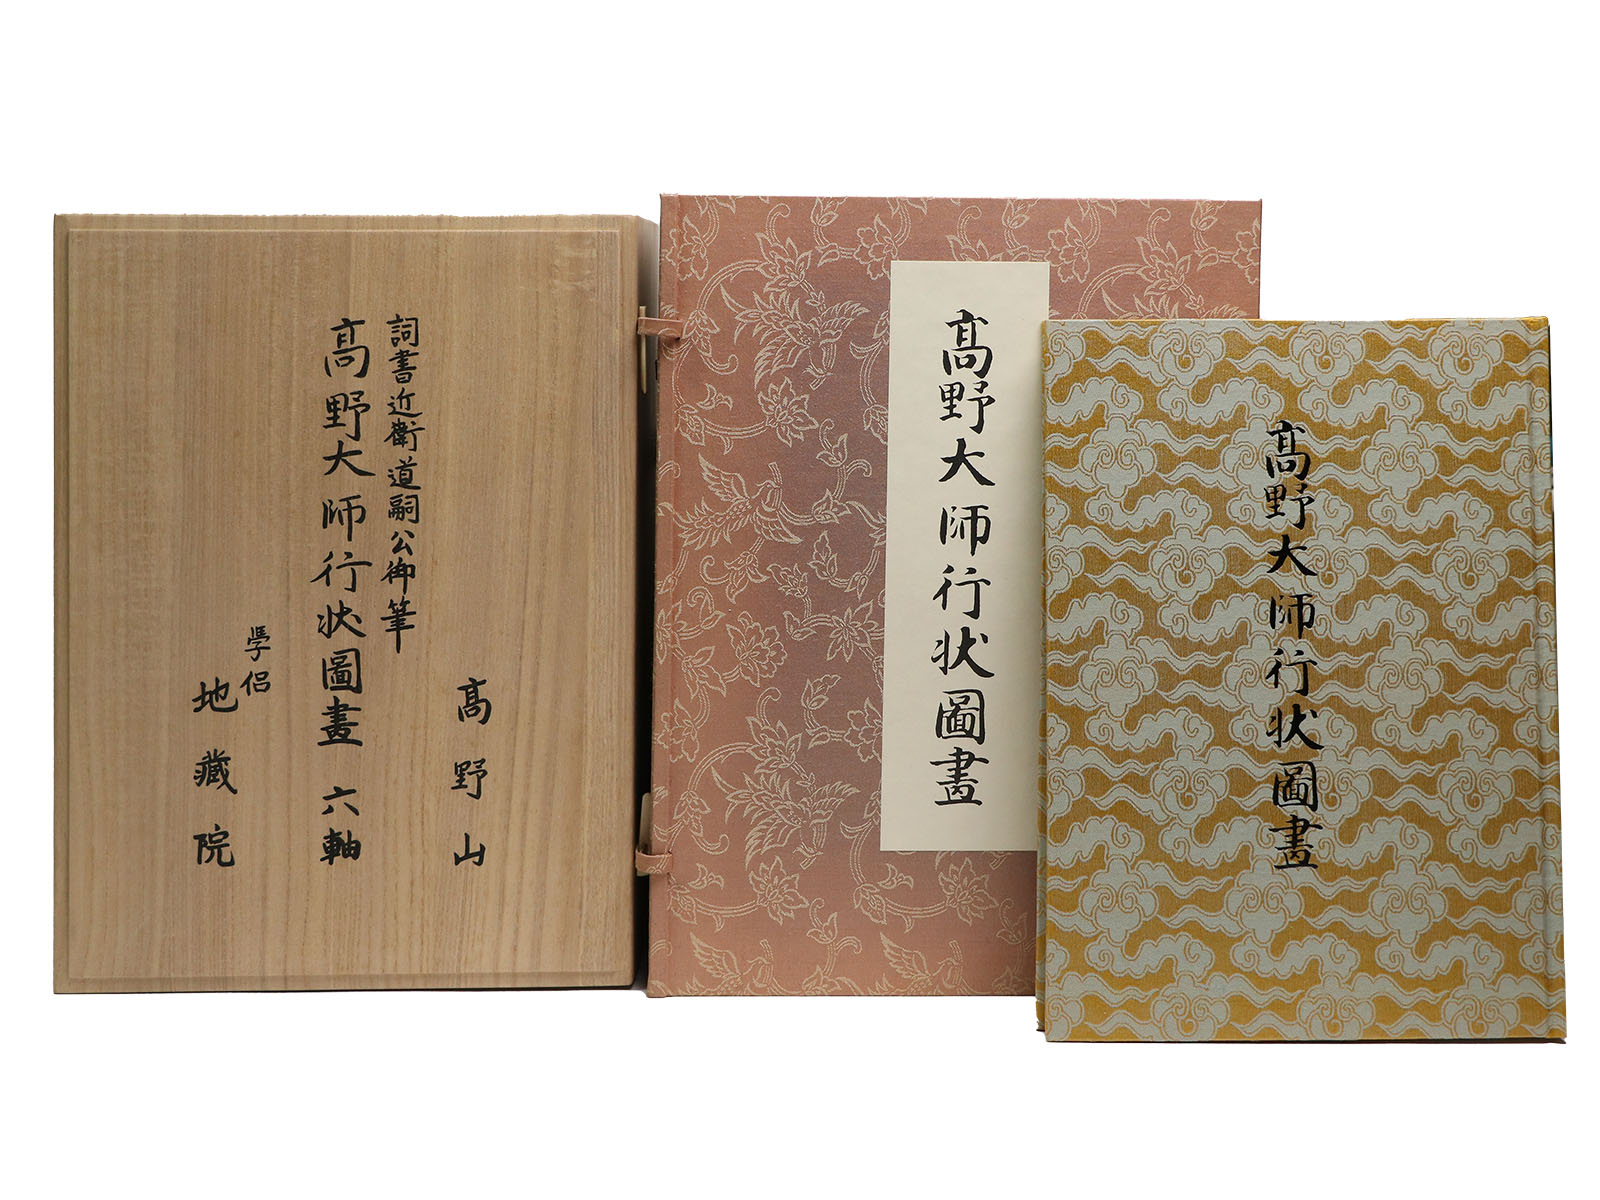 高野山
詞書近衛道嗣公御筆
高野大師行状圖畫 六軸
學侶
地藏院
高野大師行状圖畫
高野大師行状圖畫